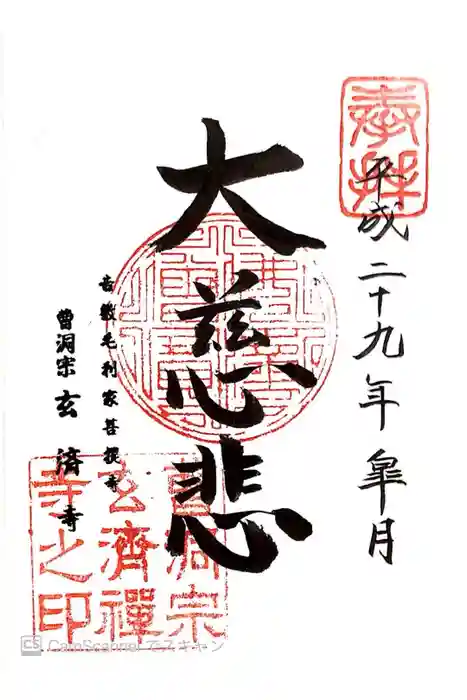 奉拝
平成二十九年 皐月
大慈悲
吉敷毛利家菩提寺
曹洞宗 玄済寺
曹洞宗
玄濟禪
寺之印
CS CamScanner でスキャン